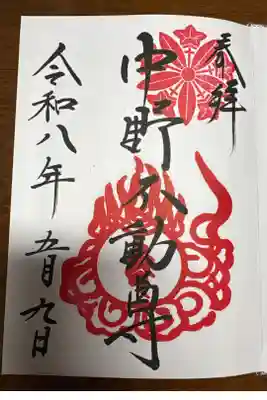 奉拝
中野不動尊
令和八年 五月九日